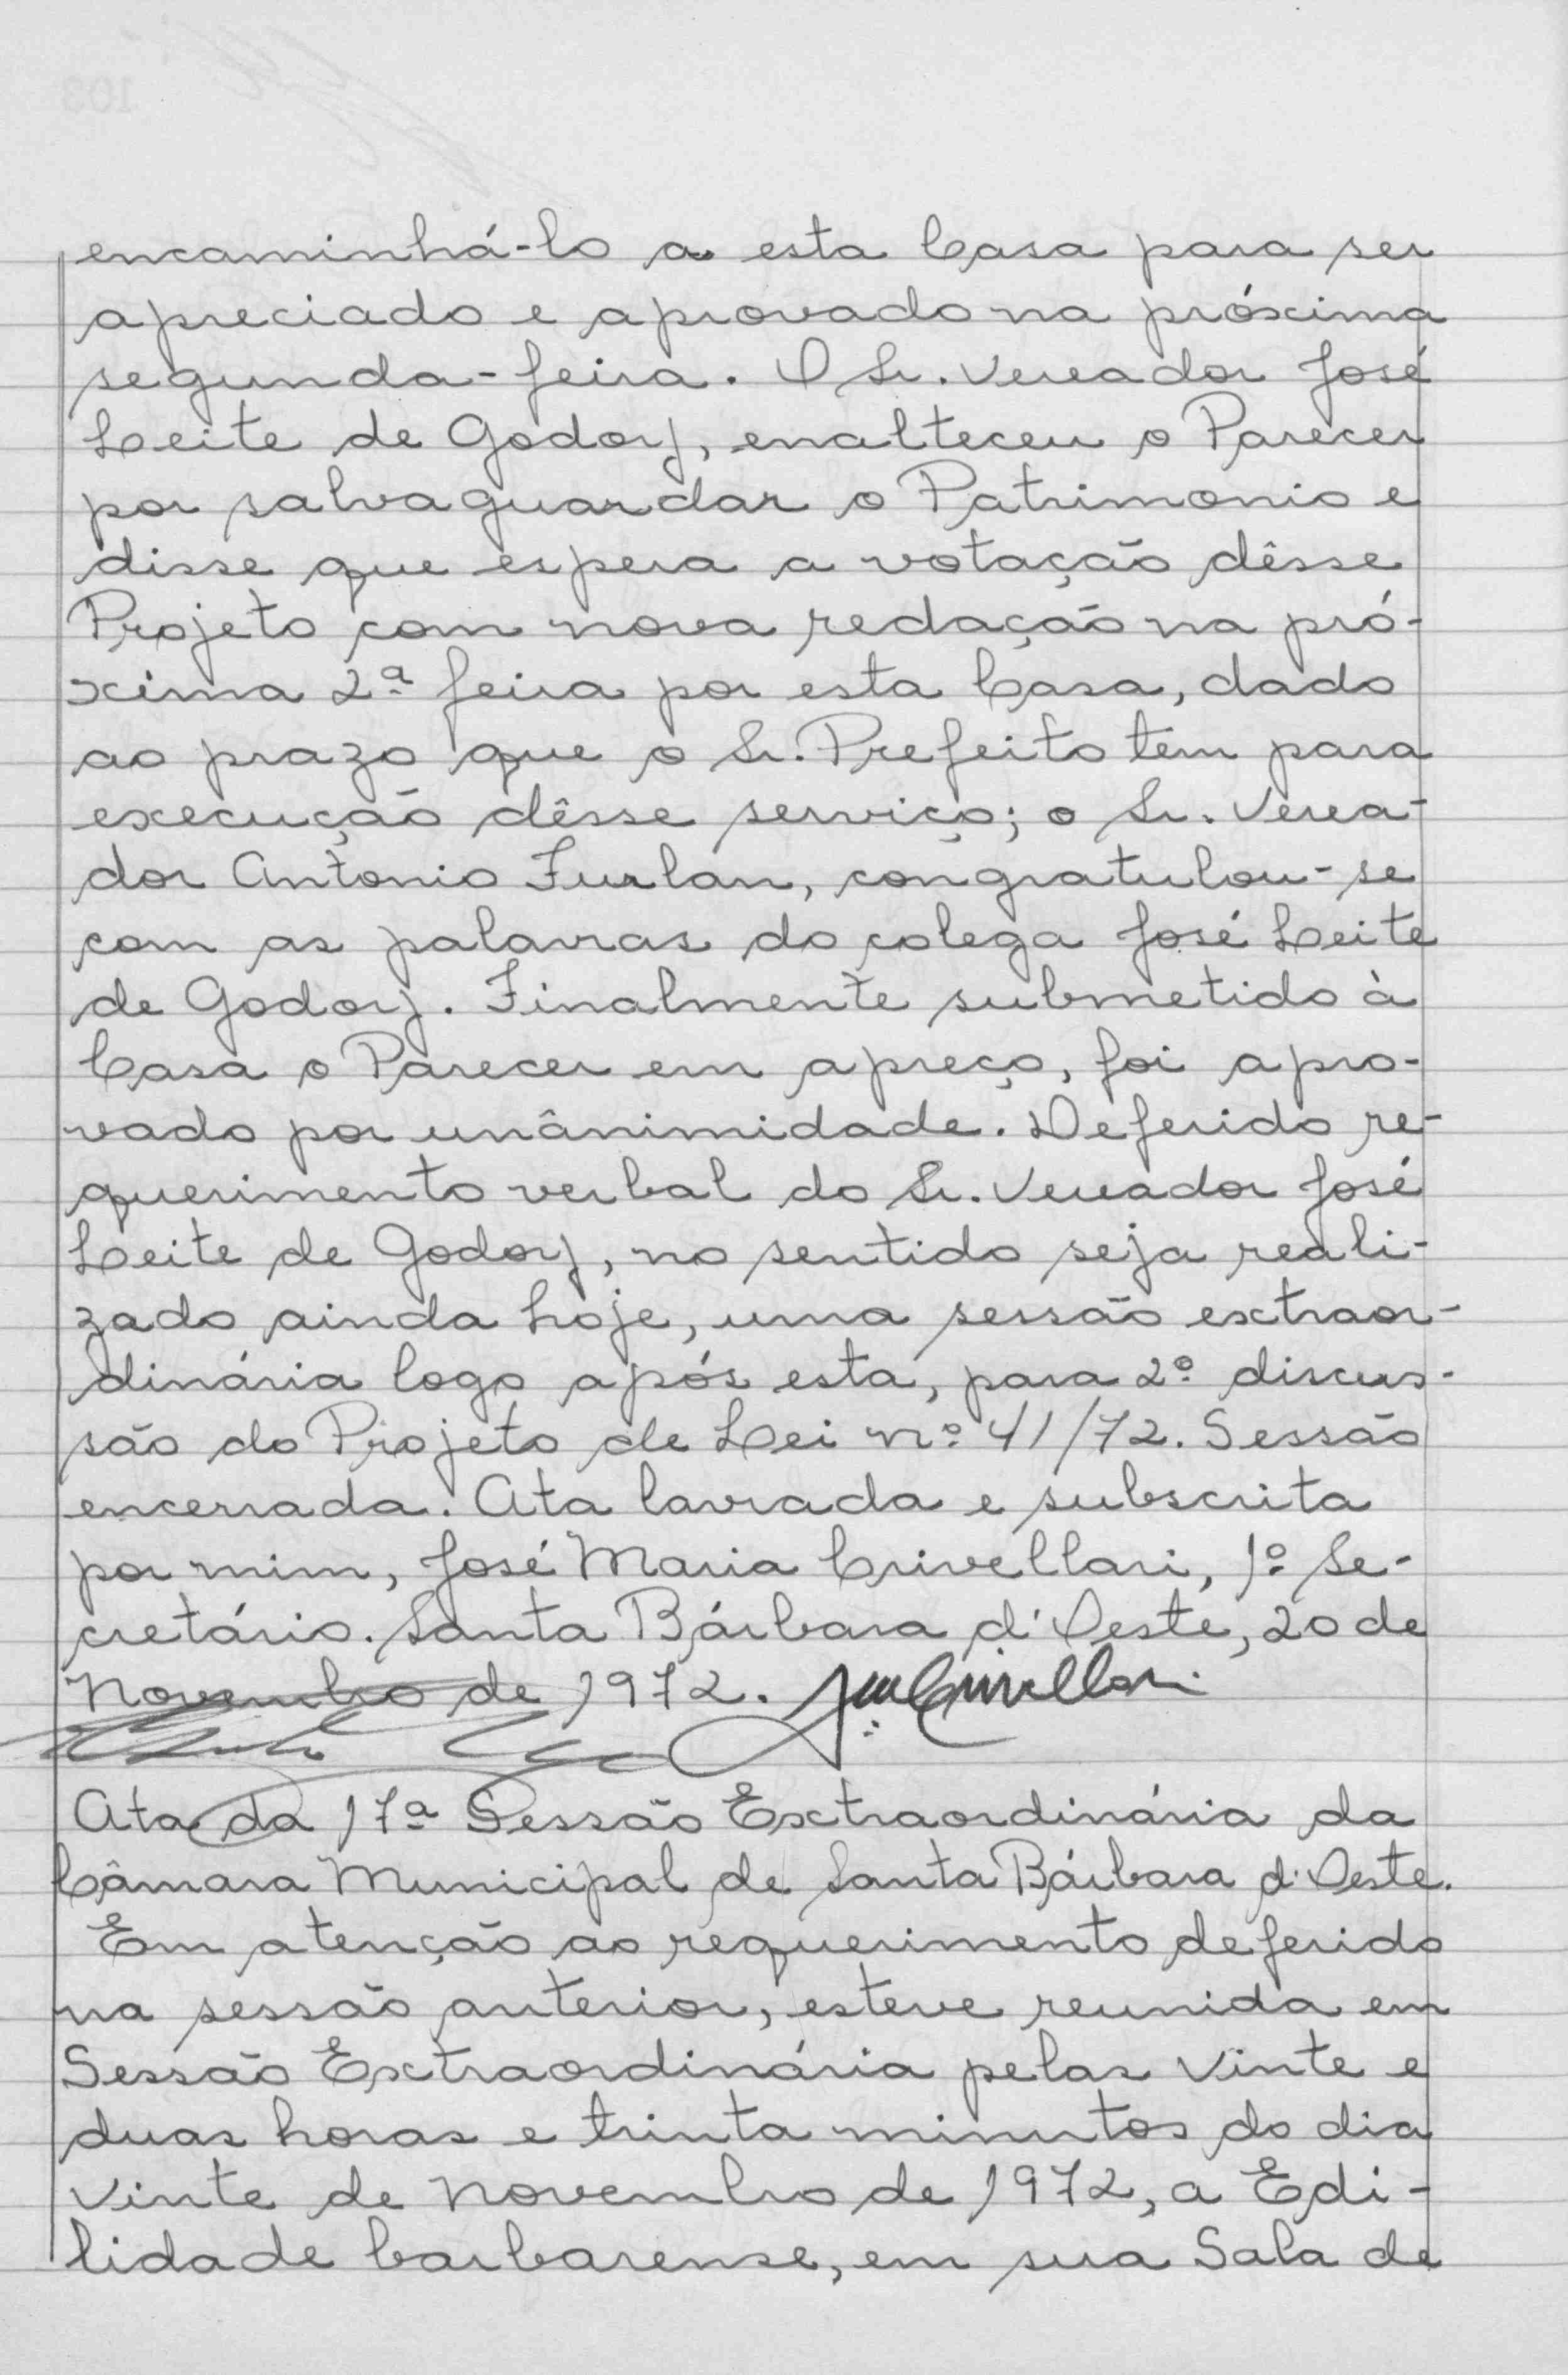 encaminhá-lo a esta Casa para ser
apreciado e aprovado na próxima
segunda-feira. O Sr. Vereador José
Leite de Godoy, enalteceu o Parecer
por salvaguardar o Patrimonio e
disse que espera a votação dêsse
Projeto com nova redação na pró-
xima 2ª feira por esta Casa, dado
ao prazo que o Sr. Prefeito tem para
execução dêsse serviço; o Sr. Verea-
dor Antonio Furlan, congratulou-se
com as palavras do colega José Leite
de Godoy. Finalmente submetido à
Casa o Parecer em apreço, foi apro-
vado por unânimidade. Deferido re-
querimento verbal do Sr. Vereador José
Leite de Godoy, no sentido seja reali-
zado ainda hoje, uma sessão extraor-
dinária logo após esta, para 2º discus-
são do Projeto de Lei nº 41/72. Sessão
encerrada. Ata lavrada e subscrita
por mim, José Maria Crivellari, 1º Se-
cretário. Santa Bárbara d'Oeste, 20 de
Novembro de 1972. JmCrivellari
Ata da 17ª Sessão Extraordinária da
Câmara Municipal de Santa Bárbara d'Oeste.
Em atenção ao requerimento deferido
na sessão anterior, esteve reunida em
Sessão Extraordinária pelas vinte e
duas horas e trinta minutos do dia
vinte de Novembro de 1972, a Edi-
lidade barbarense, em sua Sala de